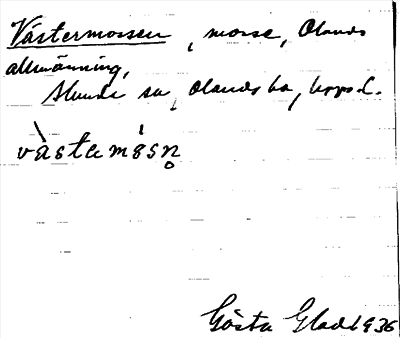 Västermossen, mosse, Olands
allmänning,
Stunde sn, Olands hd, Uppsl.
västɑmɵsn̥
Gösta Glad 1936